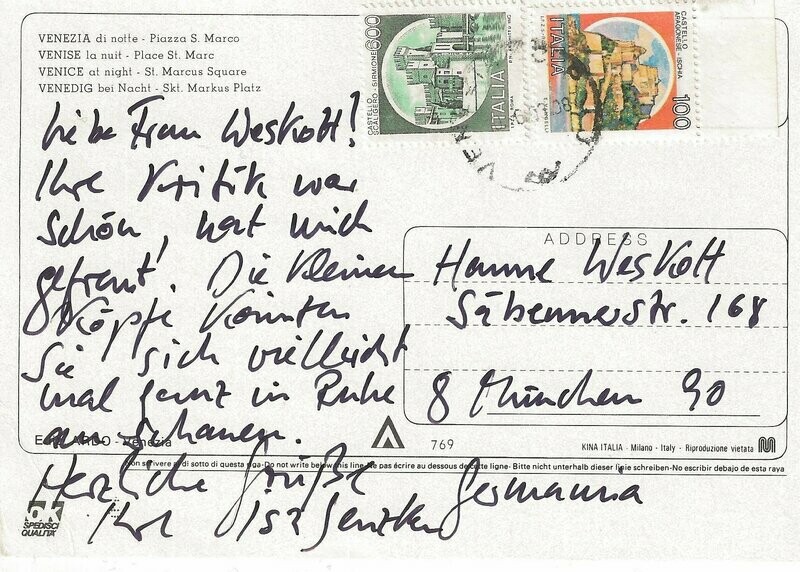 VENEZIA di notte - Piazza S. Marco
VENISE la nuit - Place St. Marc
VENICE at night - St. Marcus Square
VENEDIG bei Nacht - Skt. Markus Platz
600
ITALIA
CASTELLO
SCALIGERO - SIRMIONE
100
ITALIA
CASTELLO
ARAGONESE - ISCHIA
Liebe Frau Weskott!
Ihre Kritik war
schön, hat mich
gefreut. Die kleinen
Köpfe könnten
Sie sich vielleicht
mal ganz in Ruhe
anschauen.
Herzliche Grüße
Ihre Isa Genzken
Germania
ADDRESS
Hanne Weskott
Säbenerstr. 168
8 München 90
Venezia
769
KINA ITALIA - Milano - Italy - Riproduzione vietata
Non scrivere al di sotto di questa riga-Do not write below this line-Ne pas écrire au dessous de cette ligne- Bitte nicht unterhalb dieser linie schreiben-No escribir debajo de esta raya
ok
SPEDISCI
QUALITÀ